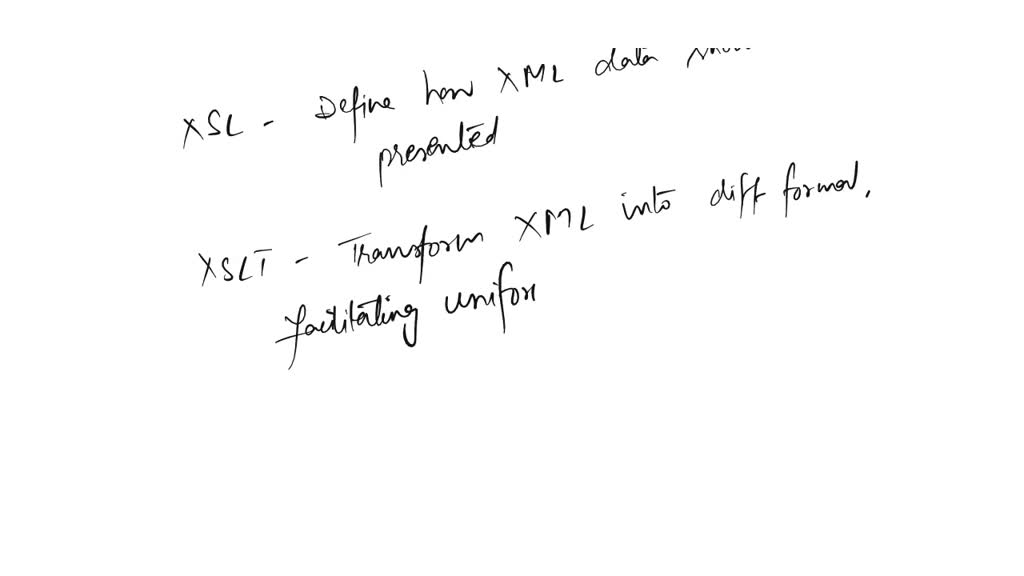 XSL - Define how XML data
presented
XSLT - Transform XML into diff format,
facilitating unifor